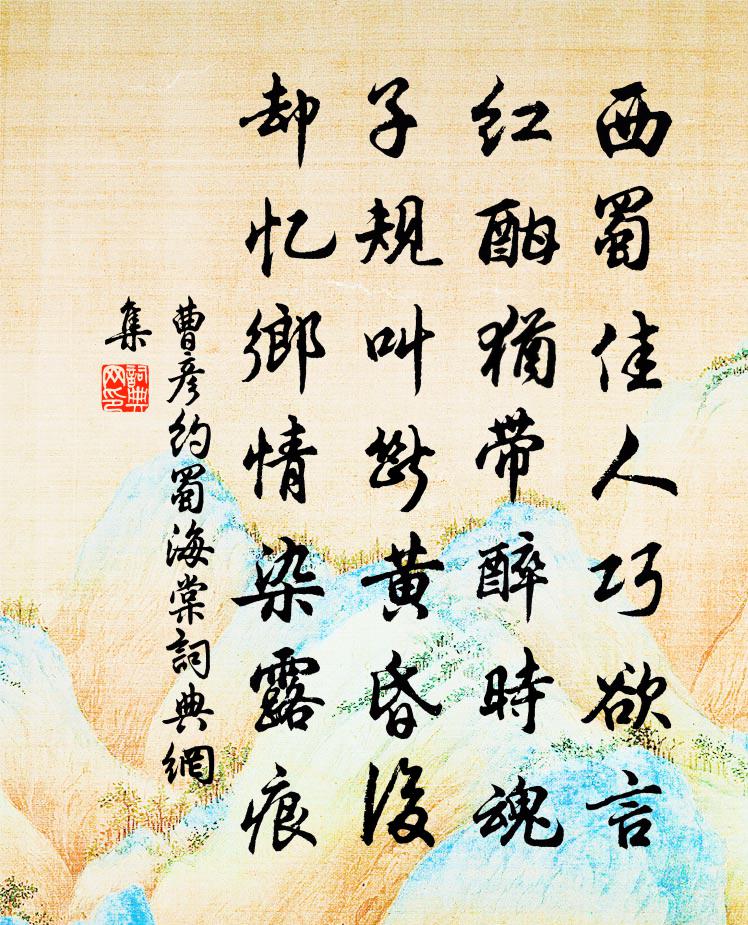 西蜀佳人巧欲言
红酣犹带醉時魂
子规叫断黄昏後
却忆鄉情染露痕
曹彦约蜀海棠詞典網
集
詞典网印